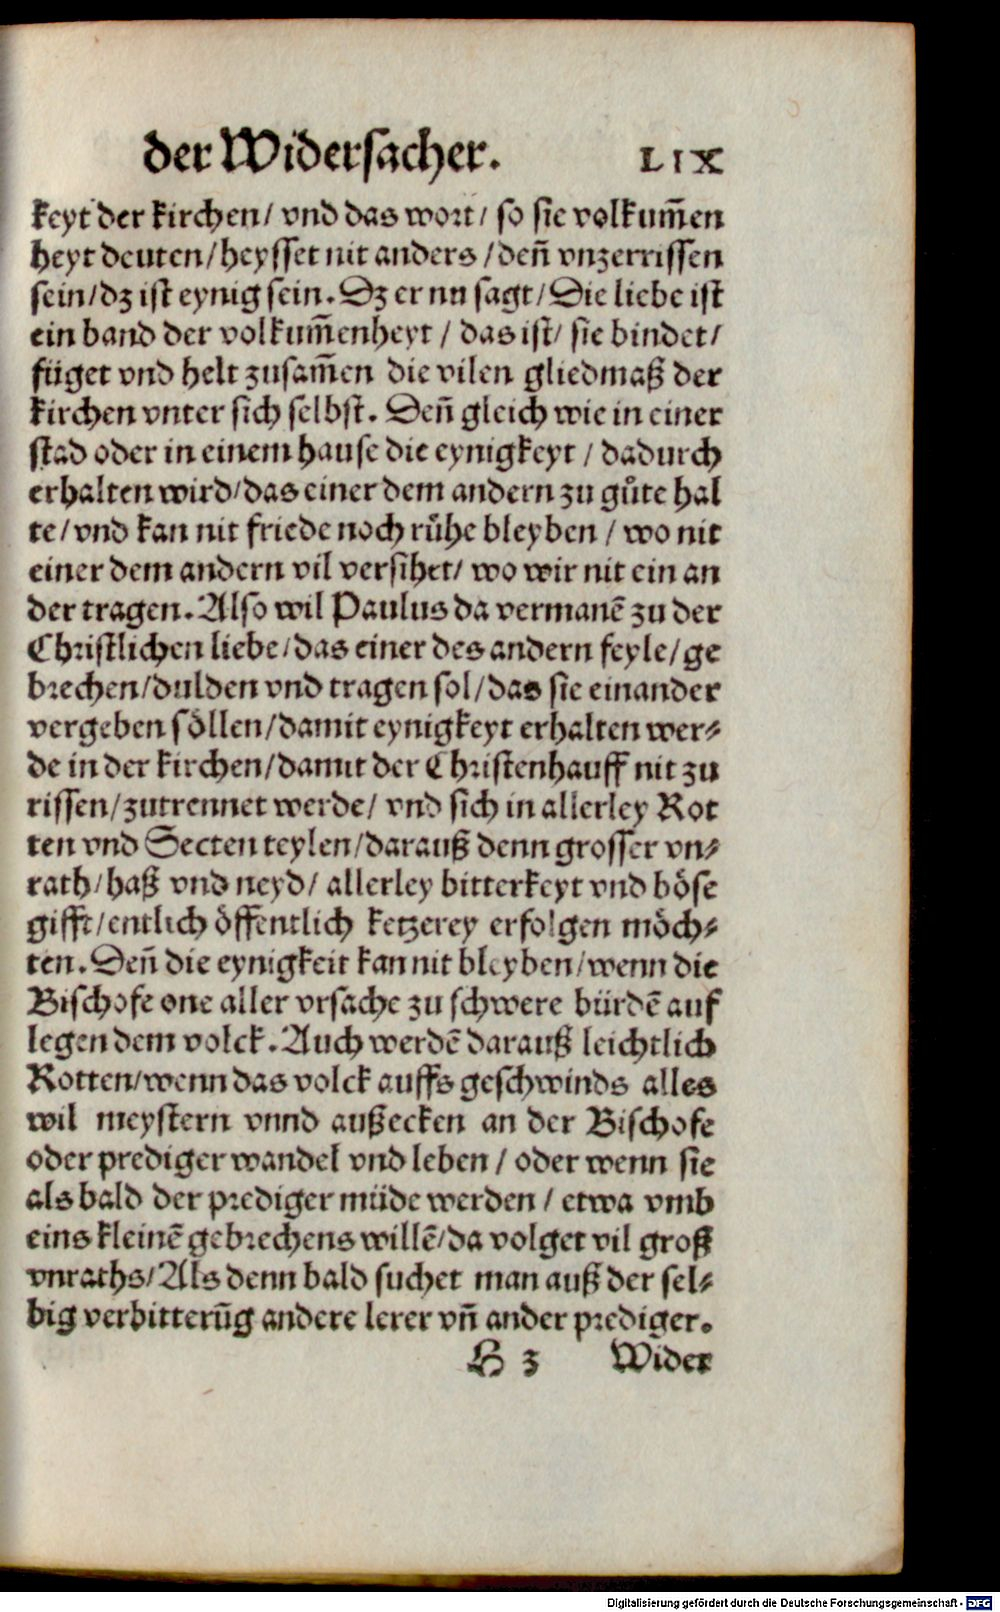 der Widersacher. LIX
keyt der kirchen/ vnd das wort/ so sie volkum̄en
heyt deuten/heysset nit anders/deñ vnzerrissen
sein/dz ist eynig sein. Dz er nu sagt/Die liebe ist
ein band der volkum̄enheyt/ das ist/ sie bindet/
füget vnd helt zusam̄en die vilen gliedmaß der
kirchen vnter sich selbst. Deñ gleich wie in einer
stad oder in einem hause die eynigkeyt/ dadurch
erhalten wird/das einer dem andern zu gůte hal
te/vnd kan nit friede noch růhe bleyben/ wo nit
einer dem andern vil versihet/ wo wir nit ein an
der tragen. Also wil Paulus da vermanē zu der
Christlichen liebe/das einer des andern feyle/ge
brechen/dulden vnd tragen sol/das sie einander
vergeben söllen/damit eynigkeyt erhalten wer⸗
de in der kirchen/damit der Christenhauff nit zu
rissen/zutrennet werde/ vnd sich in allerley Rot
ten vnd Secten teylen/darauß denn grosser vn⸗
rath/haß vnd neyd/ allerley bitterkeyt vnd böse
gifft/entlich öffentlich ketzerey erfolgen möch⸗
ten. Deñ die eynigkeit kan nit bleyben/wenn die
Bischofe one aller vrsache zu schwere bürdē auf
legen dem volck. Auch werdē darauß leichtlich
Rotten/wenn das volck auffs geschwinds alles
wil meystern vnnd außecken an der Bischofe
oder prediger wandel vnd leben/ oder wenn sie
als bald der prediger müde werden/ etwa vmb
eins kleinē gebrechens willē/da volget vil groß
vnraths/Als denn bald suchet man auß der sel⸗
big verbitterūg andere lerer vñ ander prediger.
H 3 Wider
Digitalisierung gefördert durch die Deutsche Forschungsgemeinschaft - DFG